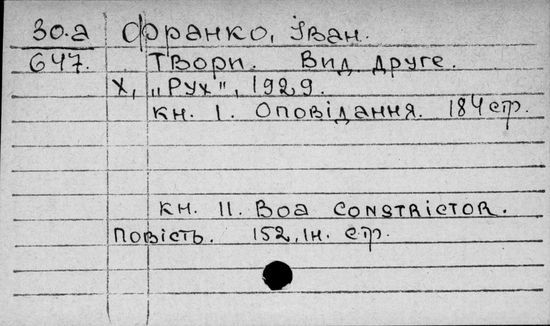 30.а Франко, Іван.
647. Твори. Вид друге.
Х, „Рух", 1929.
кн. I. Оповідання. 184 стр.
кн. II. Boa constrictor.
повість. 152, ІН. стр.